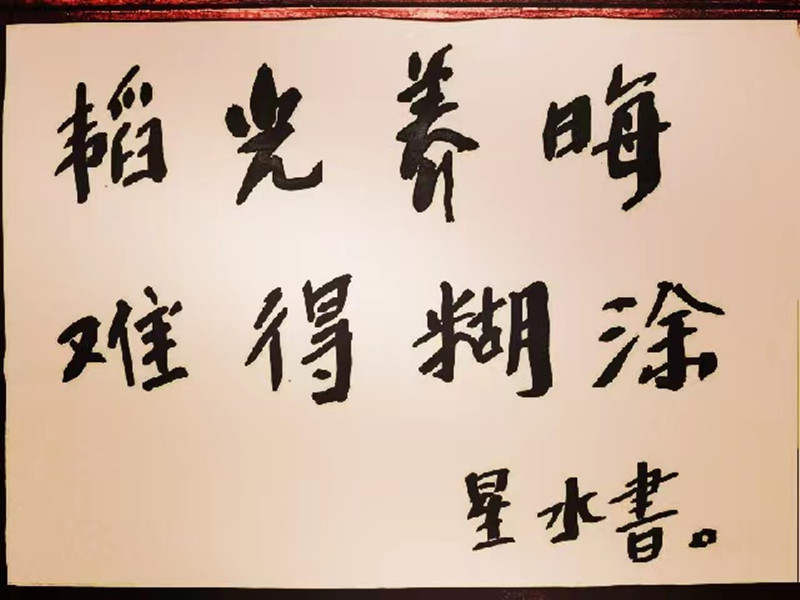 韬光养晦
难得糊涂
星水書。